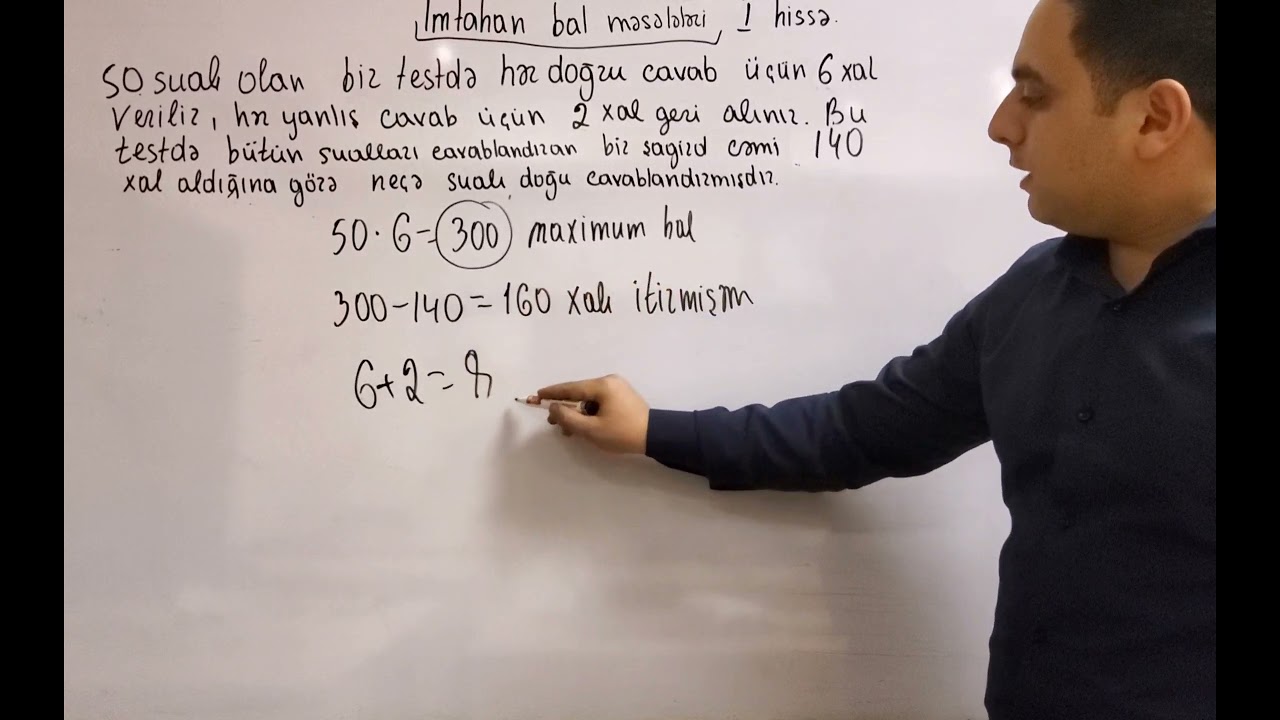 İmtahan bal məsələləri I hissə.
50 sualı olan bir testdə hər doğru cavab üçün 6 xal
verilir, hər yanlış cavab üçün 2 xal geri alınır. Bu
testdə bütün sualları cavablandıran bir şagird cəmi 140
xal aldığına görə neçə sualı doğu cavablandırmışdır.
50 · 6 = 300 maximum bal
300 - 140 = 160 xalı itirmişəm
6 + 2 = 8